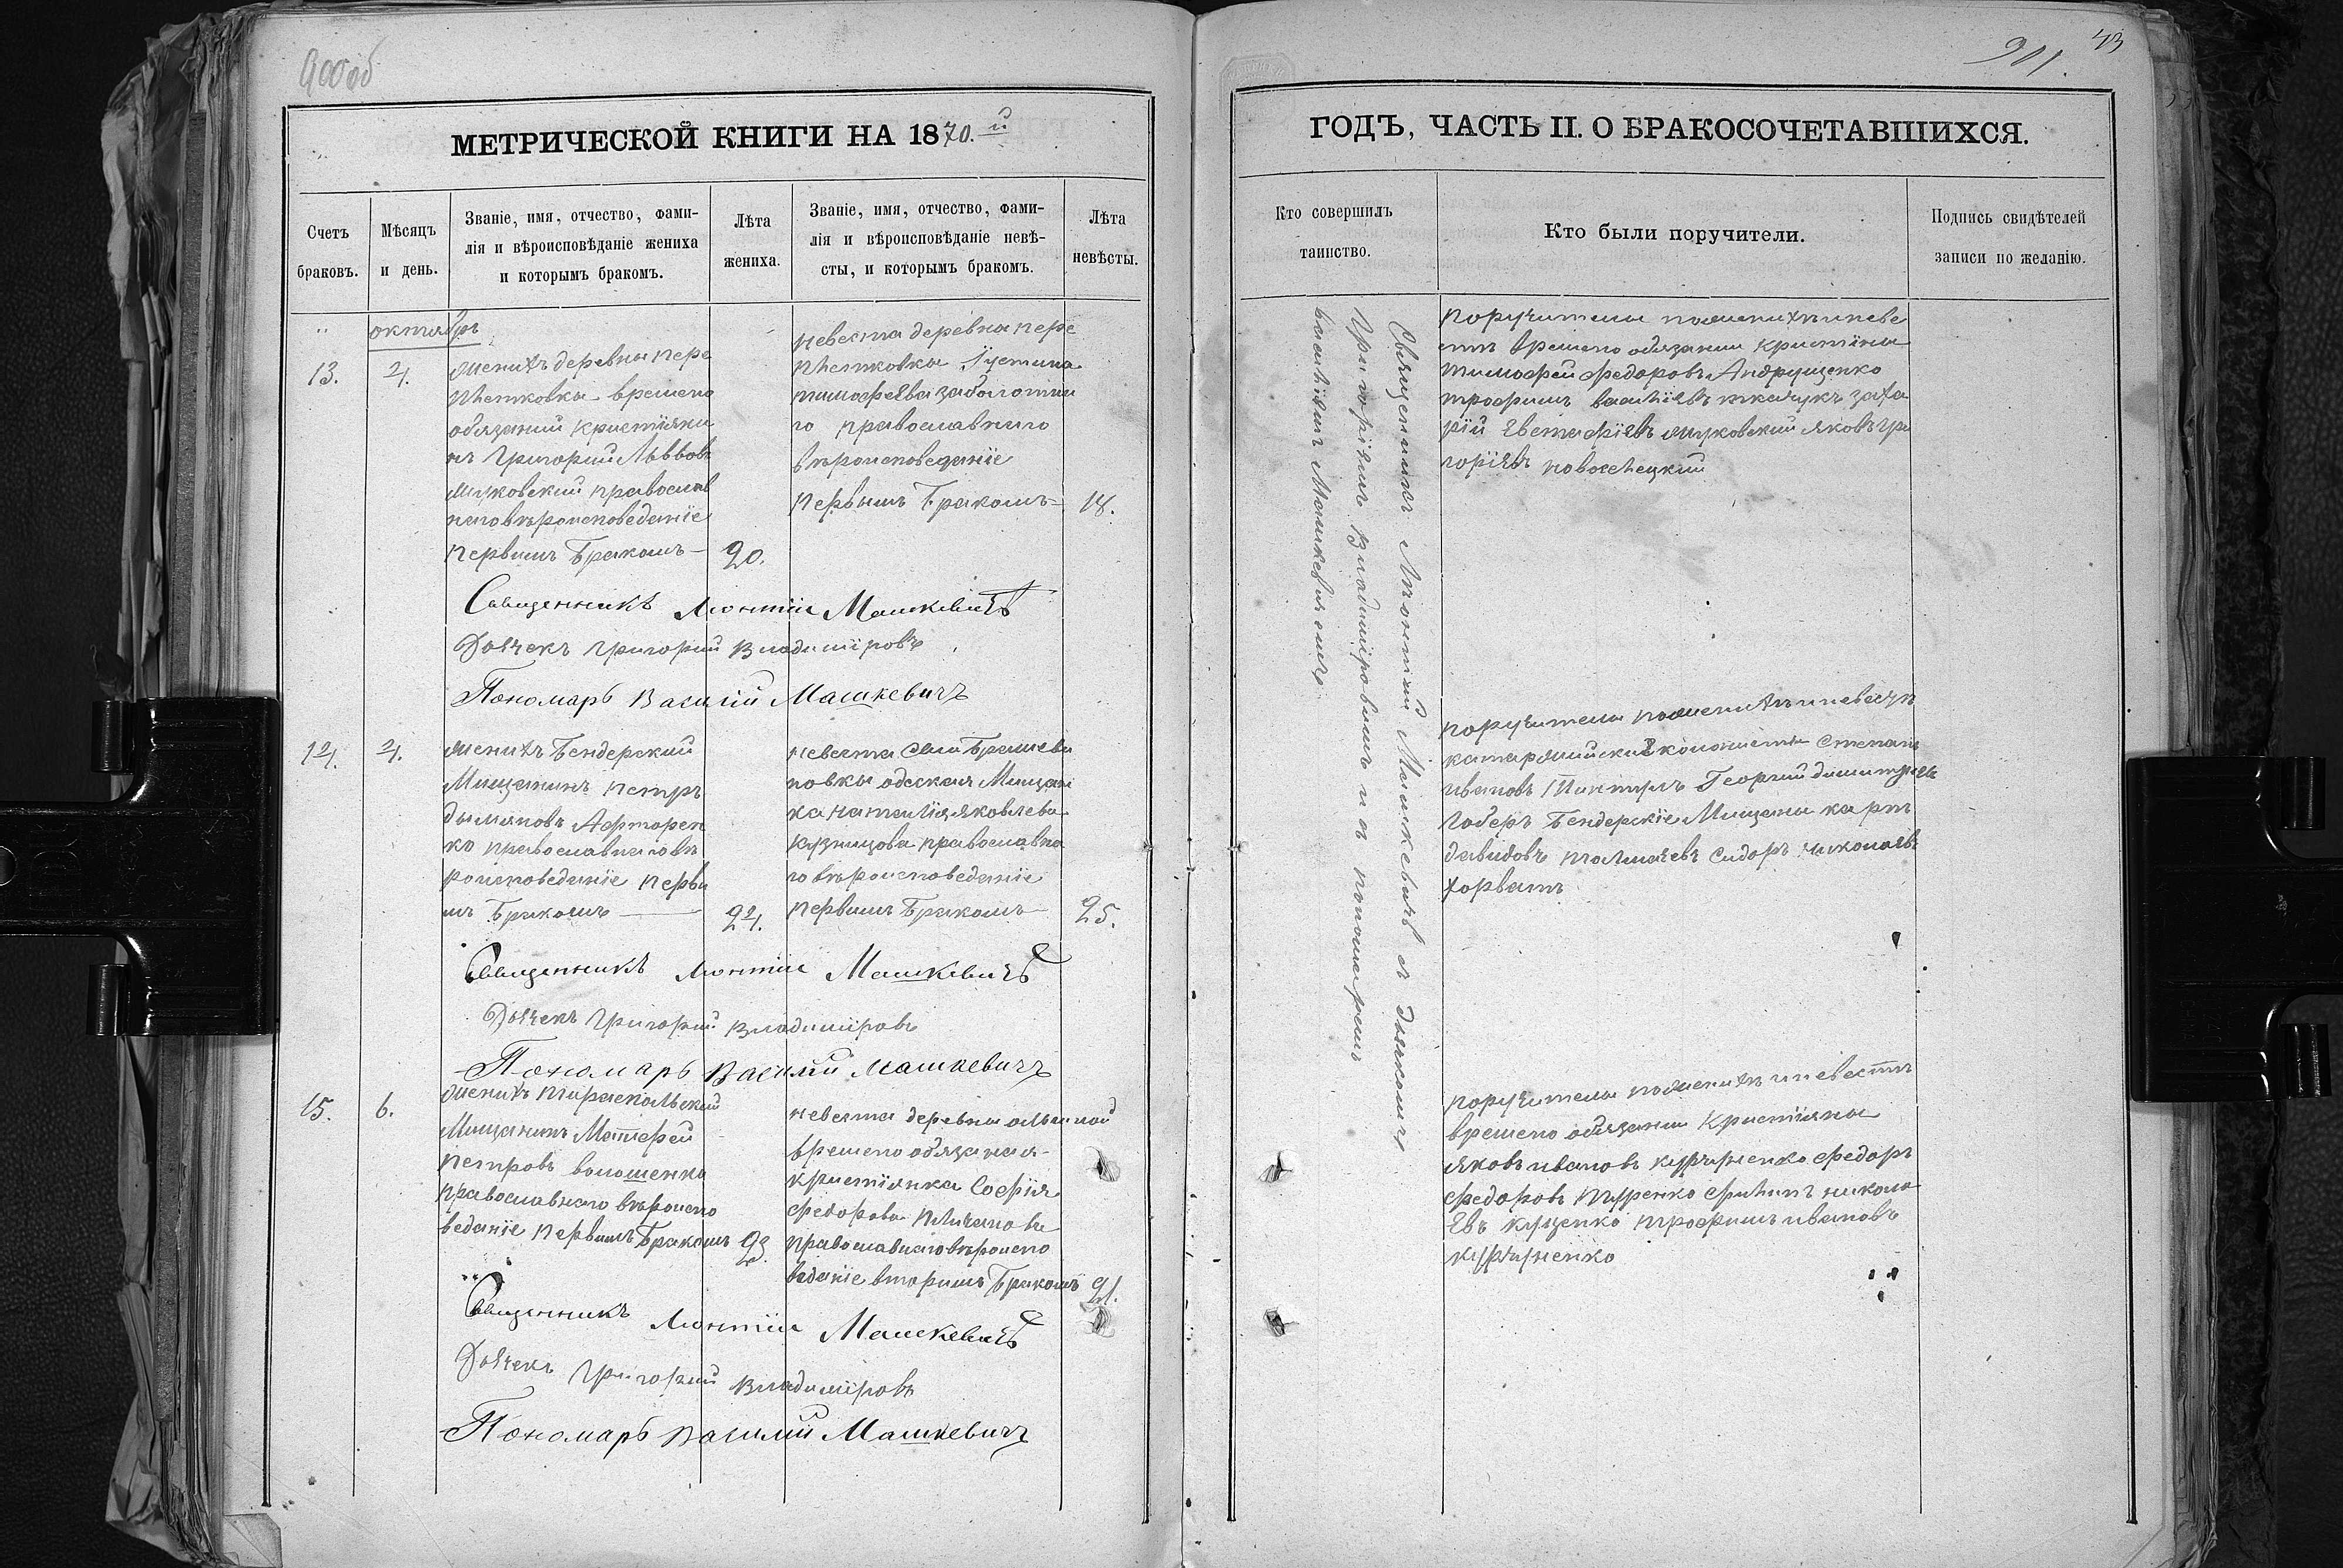 900об
МЕТРИЧЕСКОЙ КНИГИ НА 1870.й
Счетъ
браковъ.
Мѣсяцъ
и день.
Званіе, имя, отчество, фами-
лія и вѣроисповѣданіе жениха
и которымъ бракомъ.
Лѣта
жениха.
Званіе, имя, отчество, фами-
лія и вѣроисповѣданіе невѣ-
сты, и которымъ бракомъ.
Лѣта
невѣсты.
октябрь
13.
4.
женихъ деревны пере
времено
обязаный кристіяни
нъ Григорий Львовъ
жуковский православ
наго вѣроисповеданіе
первимъ Бракомъ
20.
невеста деревны пере
Іустина
тимофеева
го православнаго
вѣроисповеданіе
Первымъ Бракомъ
18.
Священникъ Леонтій Машкевичъ
Дьячекъ Григорий Владиміровъ
Пономарь Василій Машкевичъ
14.
4.
женихъ Бендерский
Мищанинъ петръ
ко православнаго вѣ
роисповеданіе перви
мъ Бракомъ
24.
невеста
одеская Мищан
ка наталія яковлева
кузницова православна
го вѣроисповеданіе
первимъ Бракомъ
25.
Священникъ Леонтій Машкевичъ
Дьячекъ Григорий Владиміровъ
Пономарь Василій Машкевичъ
15.
6.
женихъ тираспольский
Мищанинъ Матфей
петровъ волошенко
православнаго вѣроиспо
веданіе первимъ Бракомъ
23.
невеста деревны
времено обязаная
кристіянка Софія
федорова
православнаго вѣроиспо
веданіе вторимъ Бракомъ
21.
Священникъ Леонтій Машкевичъ
Дьячекъ Григорий Владиміровъ
Пономарь Василій Машкевичъ
901.
43
ГОДЪ, ЧАСТЬ II. О БРАКОСОЧЕТАВШИХСЯ.
Кто совершилъ
таинство.
Кто были поручители.
Подпись свидѣтелей
записи по желанію.
Священникъ Леонтий Машкевичъ съ дьячкомъ
Григоріемъ Владиміровимъ и съ пономаремъ
василіемъ Машкевичемъ
поручители по женихѣ и неве
стѣ времено обязании кристіяни
тимофей федоровъ Андрущенко
трофимъ василіевъ ткачукъ заха
рій Евстафіевъ жуковский яковъ гри
горіевъ новоселецкий
поручители по женихѣ и невестѣ
колонисти степанъ
ивановъ Георгий димитріевъ
Бендерскіе Мищани карпъ
давидовъ толмачевъ сидоръ николаевъ
хорватъ
поручители по женихѣ и невестѣ
времено обязании Кристіяни
яковъ ивановъ федоръ
федоровъ филипъ никола
евъ куценко трофимъ ивановъ